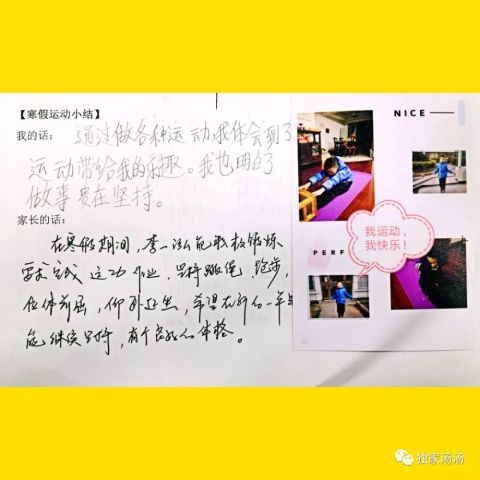 【寒假运动小结】
我的话：通过做各种运动,我体会到了
运动带给我的乐趣。我也明白了
做事贵在坚持。
家长的话：
在寒假期间，李一泓能积极锻炼
要求完成运动作业，坚持跳绳，跑步，
位体前屈，仰卧起坐，希望在新的一年里
能继续坚持，有个良好的体格。
NICE
我运动，
我快乐！
PERF
独家汤汤